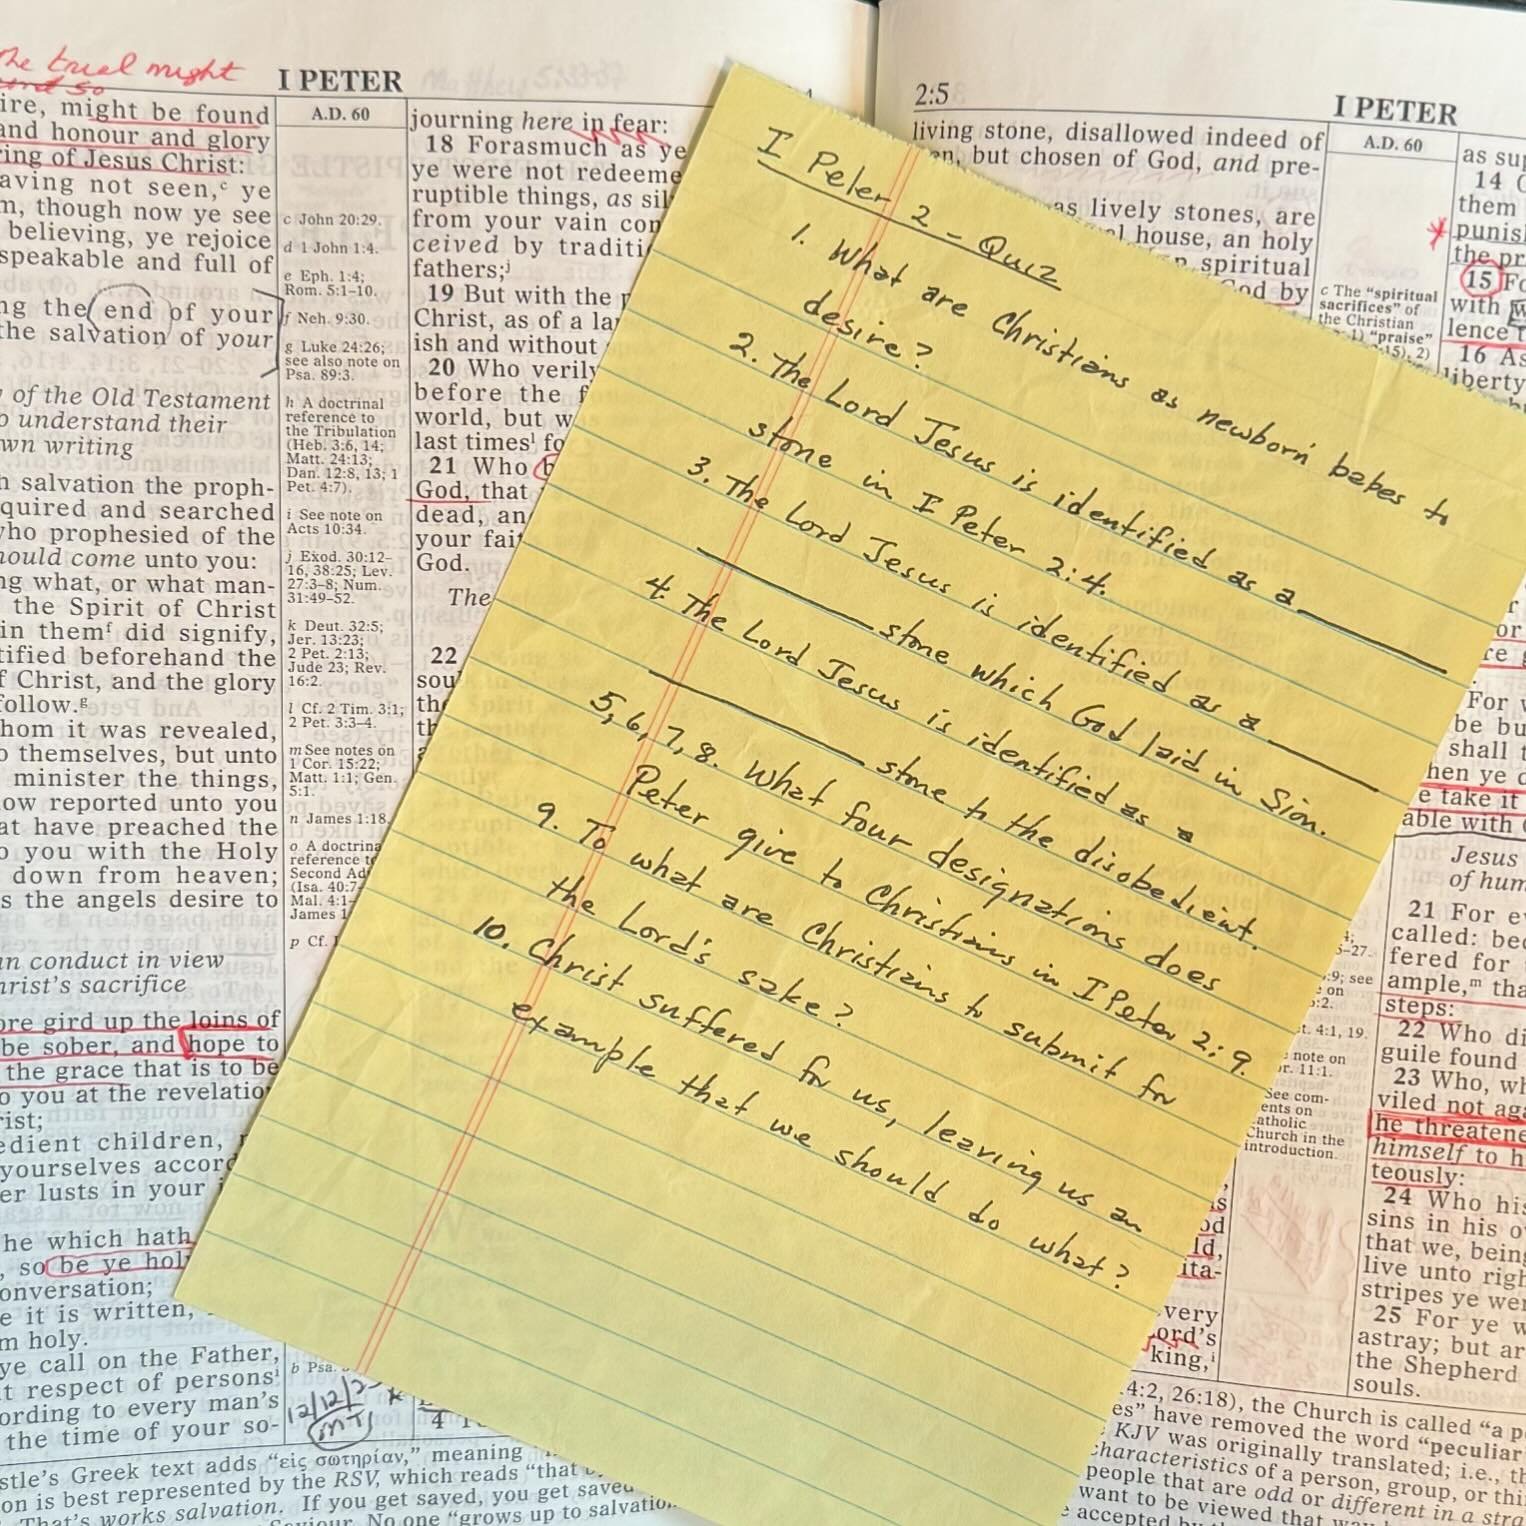 the trial might
I PETER
A.D. 60
ire, might be found
and honour and glory
ring of Jesus Christ:
aving not seen,ᶜ ye
m, though now ye see
believing, ye rejoice
speakable and full of
ng the end of your
the salvation of your
of the Old Testament
o understand their
wn writing
h salvation the proph-
quired and searched
who prophesied of the
hould come unto you:
ng what, or what man-
the Spirit of Christ
in themᶠ did signify,
tified beforehand the
f Christ, and the glory
follow.ᵍ
hom it was revealed,
o themselves, but unto
minister the things,
ow reported unto you
at have preached the
o you with the Holy
down from heaven;
s the angels desire to
an conduct in view
hrist's sacrifice
ore gird up the loins of
be sober, and hope to
the grace that is to be
o you at the revelatio
rist;
edient children,
yourselves accord
er lusts in your
he which hath
, so be ye hol
onversation;
e it is written,
m holy.
ye call on the Father,
t respect of personsⁱ
ording to every man's
the time of your so-
c John 20:29.
d 1 John 1:4.
e Eph. 1:4;
Rom. 5:1–10.
f Neh. 9:30.
g Luke 24:26;
see also note on
Psa. 89:3.
h A doctrinal
reference to
the Tribulation
(Heb. 3:6, 14;
Matt. 24:13;
Dan. 12:8, 13; 1
Pet. 4:7).
i See note on
Acts 10:34.
j Exod. 30:12–
16, 38:25; Lev.
27:3–8; Num.
31:49–52.
k Deut. 32:5;
Jer. 13:23;
2 Pet. 2:13;
Jude 23; Rev.
16:2.
l Cf. 2 Tim. 3:1;
2 Pet. 3:3–4.
m See notes on
1 Cor. 15:22;
Matt. 1:1; Gen.
5:1.
n James 1:18.
o A doctrina
reference to
Second Ad
(Isa. 40:7–
Mal. 4:1–
James 1
p Cf.
b Psa.
journing here in fear:
18 Forasmuch as ye
ye were not redeeme
ruptible things, as sil
from your vain con
ceived by traditi
fathers;ʲ
19 But with the
Christ, as of a la
ish and without
20 Who verily
before the f
world, but w
last timesˡ fo
21 Who b
God, that
dead, an
your fai
God.
The
22
soul
the
stle's Greek text adds “εἰς σωτηρίαν,” meaning
on is best represented by the RSV, which reads “that
That's works salvation. If you get sayed, you get saved
Saviour. No one “grows up to salvation
I Peter 2 - Quiz
1. What are Christians as newborn babes to
desire?
2. The Lord Jesus is identified as a
stone in I Peter 2:4.
3. The Lord Jesus is identified as a
stone which God laid in Sion.
4. The Lord Jesus is identified as a
stone to the disobedient.
5, 6, 7, 8. What four designations does
Peter give to Christians in I Peter 2:9.
9. To what are Christians to submit for
the Lord's sake?
10. Christ suffered for us, leaving us an
example that we should do what?
2:5
I PETER
A.D. 60
living stone, disallowed indeed of
en, but chosen of God, and pre-
as lively stones, are
l house, an holy
spiritual
God by
c The “spiritual
sacrifices” of
the Christian
“praise”
as sup
14
them
punish
the pr
15 Fo
with
lence
16 As
liberty
For w
be bu
shall t
hen ye
e take it
able with
Jesus
of hum
21 For ev
called: bec
fered for
ample,ᵐ tha
steps:
22 Who di
guile found
23 Who, wh
viled not aga
he threatene
himself to h
teously:
24 Who his
sins in his o
that we, being
live unto righ
stripes ye wer
25 For ye w
astray; but ar
the Shepherd
souls.
t. 4:1, 19.
note on
or. 11:1.
See com-
ents on
atholic
Church in the
introduction.
very
Lord's
king,ⁱ
4:2, 26:18), the Church is called “a p
es” have removed the word “peculiar
KJV was originally translated; i.e., th
characteristics of a person, group, or thi
people that are odd or different in a stra
want to be viewed that
accepted by